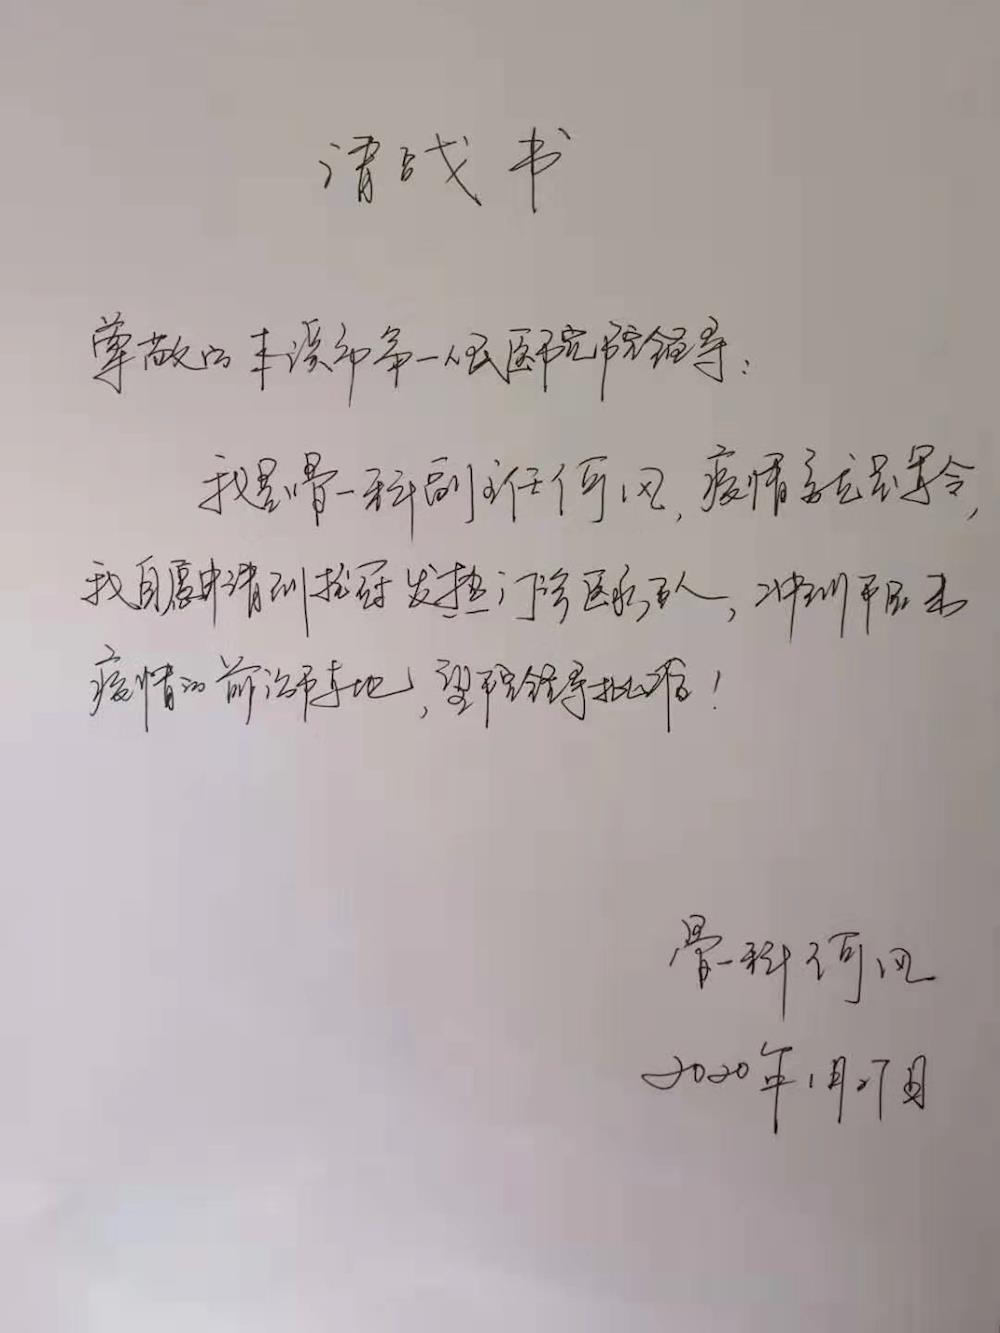 请战书
尊敬的本溪市第一人民医院院领导：
我是骨一科副主任何风，疫情就是军令，
我自愿申请到抗冠发热门诊医护工人，冲到平息本
疫情的前沿阵地，望院领导批准！
骨一科何风
2020年1月27日